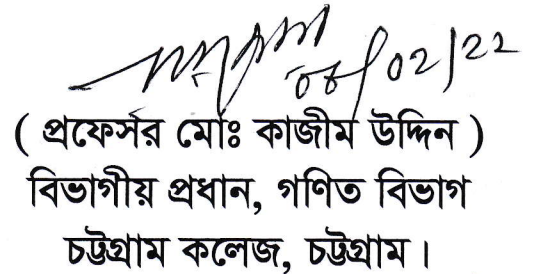 ০৮/০২/২২
( প্রফেসর মোঃ কাজীম উদ্দিন )
বিভাগীয় প্রধান, গণিত বিভাগ
চট্টগ্রাম কলেজ, চট্টগ্রাম।